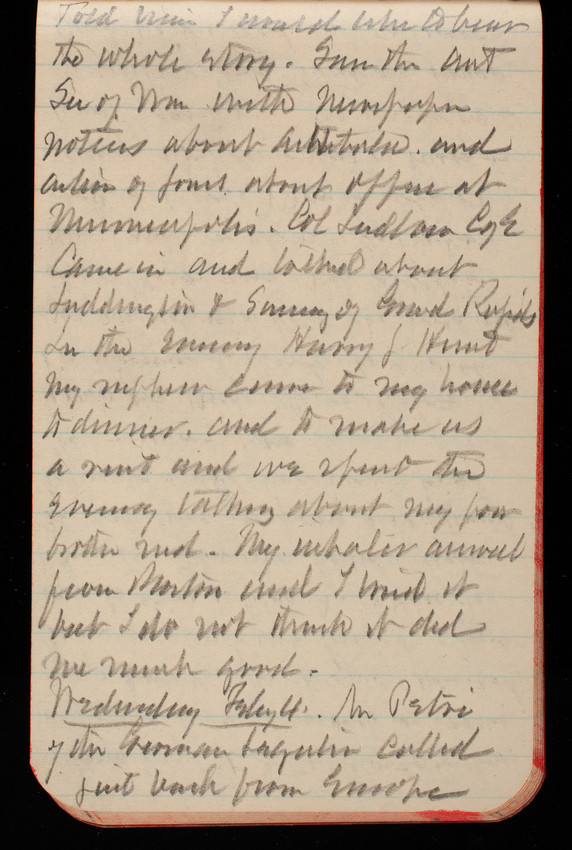 Told him I would like to hear
the whole story. Saw the Act
Sec of War with Newspaper
notices about and
action of about office at
Minneapolis. Col Ludlow CofE
Came in and talked about
Luddington & Survey of Grand Rapids
In the evening Harry J Hunt
my nephew came to my house
to dinner. and to make us
a visit and we spent the
evening talking about my poor
brother and. My inhaler arrived
from Morton and I tried it
but I do not think it did
me much good.
Wednesday Feby 4. Mr Petri
of the German Legation called
just back from Europe